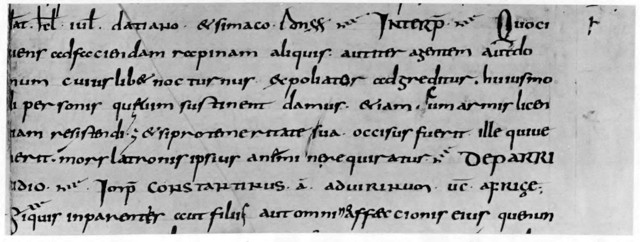 dat kl iul. datiano. & simaco. INTERP Quoci
uens adfaciendam rapinam aliquis. aut iter agentem aut do
mum cuiuslibet nocturnus. expoliator adgreditur. huiusmo
di personis qui uim sustinent damus. etiam. cum armis licen
tiam resistendi; & si pro temeritate sua. occisus fuerit ille qui ue
nerit. mors latronis ipsius requiratur DE PARRI
CONSTANTINUS. A. AD UIRINUM UC AFRICĘ;
Siquis in parentes aut filiis aut affeccionis eius